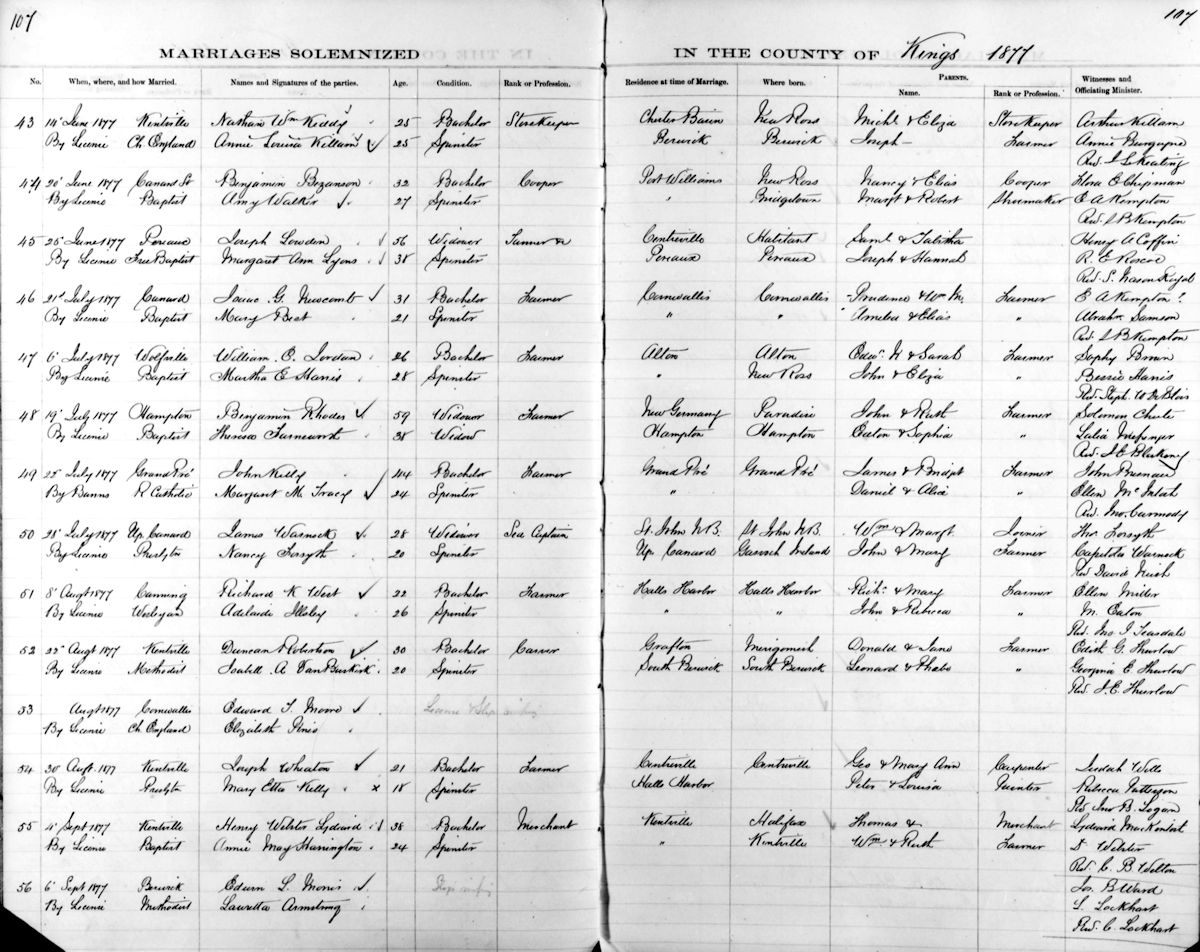 107 107
MARRIAGES SOLEMNIZED IN THE COUNTY OF Kings 1877
No. When, where, and how Married. Names and Signatures of the parties. Age. Condition. Rank or Profession. Residence at time of Marriage. Where born. PARENTS. Witnesses and
Name. Rank or Profession. Officiating Minister.
43 14 June 1877 Kentville Nathan Wm Kiddy 25 Bachelor Storekeeper Chester Basin New Ross Michl & Eliza Storekeeper Arthur Killam
By Licenie Ch England Annie Louisa Killam 25 Spinster Berwick Berwick Joseph - Farmer Annie Burgoyne
Revd J L Keating
44 20 June 1877 Canard St Benjamin Bezanson 32 Bachelor Cooper Port Williams New Ross Nancy & Elias Cooper Flora E Chipman
By Licenie Baptist Amy Walker 27 Spinster " Bridgetown Margt & Robert Shoemaker E A Kempton
Revd S B Kempton
45 25 June 1877 Pereaux Joseph Lowden 56 Widower Farmer &c Centreville Habitant Saml & Tabitha Henry A Coffin
By Licenie Free Baptist Margaret Ann Lyons 38 Spinster Pereaux Pereaux Joseph & Hannah R. E Roscoe
Revd S.
46 21st July 1877 Canard Isaac G. Newcomb 31 Bachelor Farmer Cornwallis Cornwallis Prudence & Wm Farmer E A Kempton
By Licenie Baptist Mary Best 21 Spinster " " Amelia & Elias " Abrahm Samson
Revd S B Kempton
47 6 July 1877 Wolfville William E. Jordan 26 Bachelor Farmer Alton Alton Edwd & Sarah Farmer Sophy
By Licenie Baptist Martha E Harris 28 Spinster " New Ross John & Eliza " Bessie Harris
Revd Steph. W DeBlois
48 19 July 1877 Hampton Benjamin Rhodes 59 Widower Farmer New Germany Paradise John & Ruth Farmer Solomon Chute
By Licenie Baptist Theresa Farnsworth 38 Widow Hampton Hampton Eaton & Sophia " Messenger
Revd J E Blakeney
49 22 July 1877 Grand Pré John Kelly 44 Bachelor Farmer Grand Pré Grand Pré James & Bridgt Farmer John
By Banns R Catholic Margaret M. Tracy 24 Spinster " Daniel & Alice " Ellen McIntosh
Revd Jno. Carmody
50 28 July 1877 Up. Canard James Warnock 28 Widower Sea Captain St. John N.B. St. John N.B. Wm & Margt. Joiner Thos Forsyth
By Licenie Presbytn Nancy Forsyth 20 Spinster Up. Canard Ireland John & Mary Farmer Warnock
Revd David
51 8 Augt 1877 Canning Richard K West 22 Bachelor Farmer Halls Harbor Halls Harbor Richd & Mary Farmer Ellen Miller
By Licenie Wesleyan Adelaide Illsley 26 Spinster " " John & Rebecca " M. Eaton
Revd Jno. J Teasdale
52 22 Augt 1877 Kentville Duncan Robertson 30 Bachelor Carver Grafton Merigomish Donald & Jane Farmer Edith G. Thurlow
By Licenie Methodist Isabell A VanBuskirk 20 Spinster South Berwick South Berwick Leonard & Phebe " Georgina E Thurlow
Revd J. E. Thurlow
53 Augt 1877 Cornwallis Edward T. Moore License & Slip
By Licenie Ch. England Elizabeth
54 30 Augt. 1877 Kentville Joseph Wheaton 21 Bachelor Farmer Centreville Centreville Geo & Mary Ann Carpenter Wells
By Licenie Presbytn Mary Etta Kelly x 18 Spinster Halls Harbor Peter & Louisa Painter Rebecca Patterson
Revd Jno B. Logan
55 4 Sept 1877 Kentville Henry Webster Lydiard 38 Bachelor Merchant Kentville Halifax Thomas & Merchant Lydiard
By Licenie Baptist Annie May Harrington 24 Spinster " Kentville Wm & Ruth Farmer D Webster
Revd C. B Welton
56 6 Sept 1877 Berwick Edwin L. Morris Slip Jos. B Ward
By Licenie Methodist Lauretta Armstrong S. Lockhart
Revd C. Lockhart